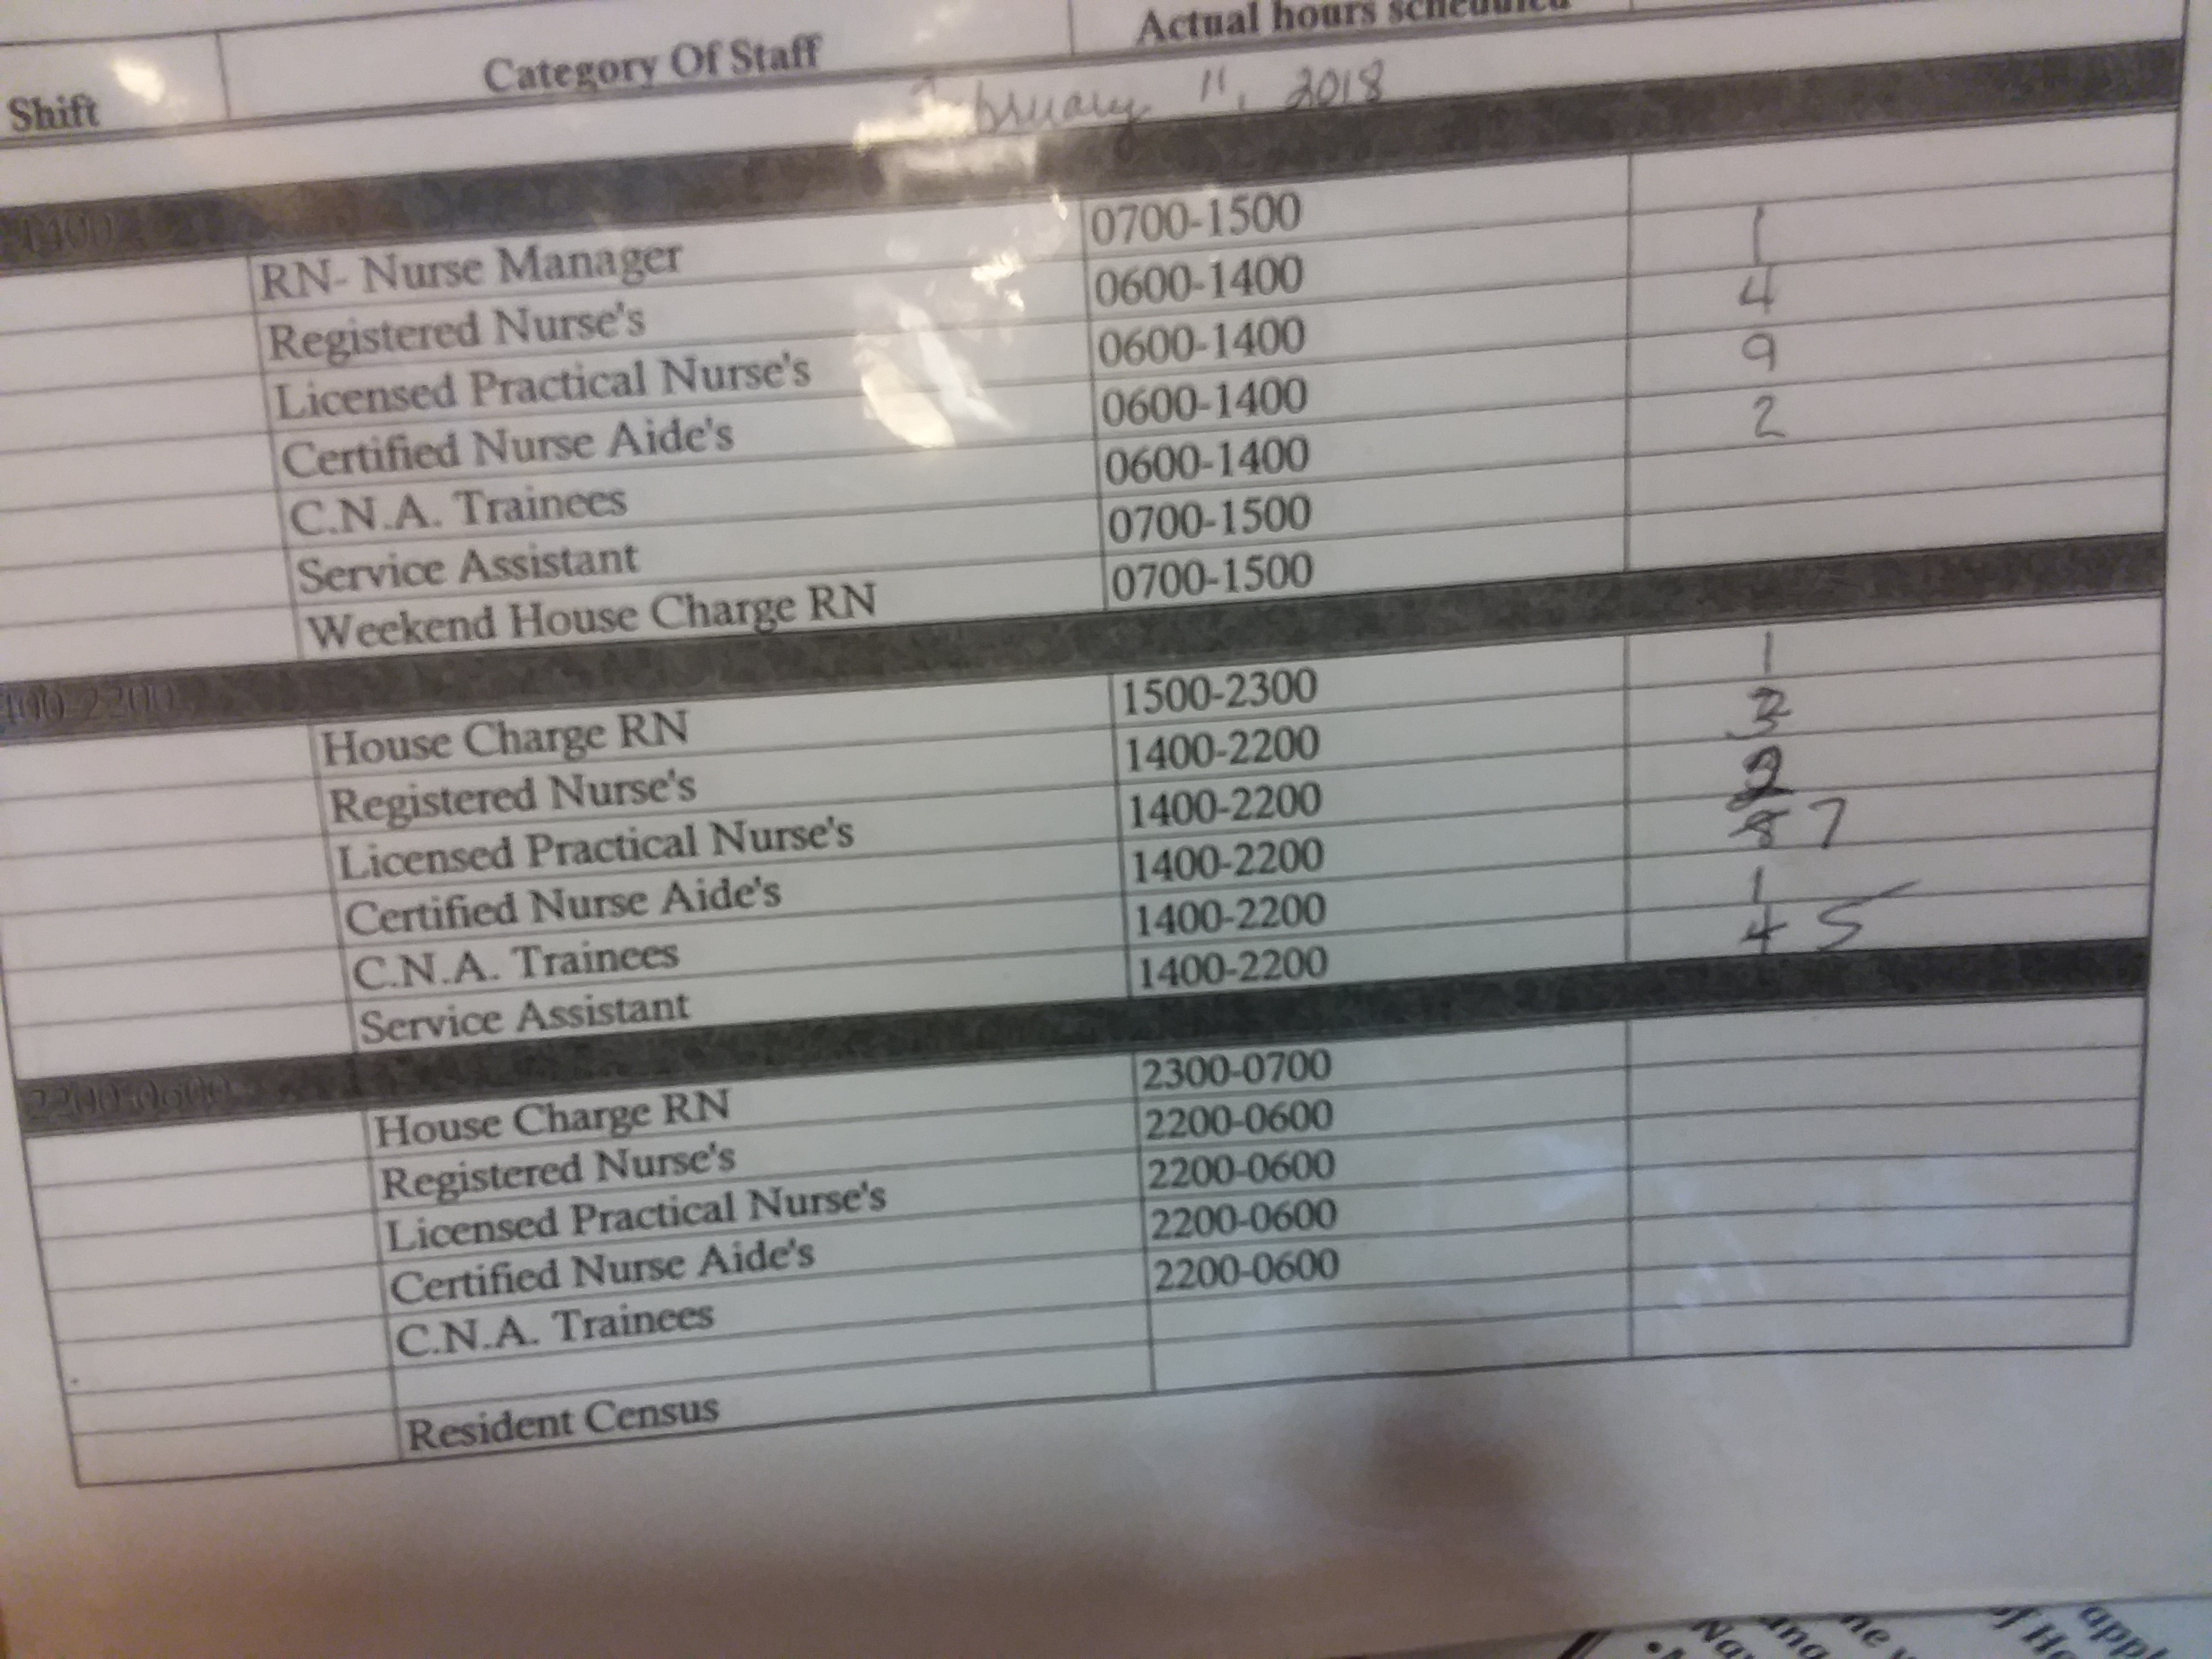 Shift Category Of Staff Actual hours scheduled
February 11, 2018
RN- Nurse Manager 0700-1500
Registered Nurse's 0600-1400 1
Licensed Practical Nurse's 0600-1400 4
Certified Nurse Aide's 0600-1400 9
C.N.A. Trainees 0600-1400 2
Service Assistant 0700-1500
Weekend House Charge RN 0700-1500
400-2200
House Charge RN 1500-2300 1
Registered Nurse's 1400-2200 3
Licensed Practical Nurse's 1400-2200 2
Certified Nurse Aide's 1400-2200 8 7
C.N.A. Trainees 1400-2200 1
Service Assistant 1400-2200 4 5
2200-0600
House Charge RN 2300-0700
Registered Nurse's 2200-0600
Licensed Practical Nurse's 2200-0600
Certified Nurse Aide's 2200-0600
C.N.A. Trainees 2200-0600
Resident Census